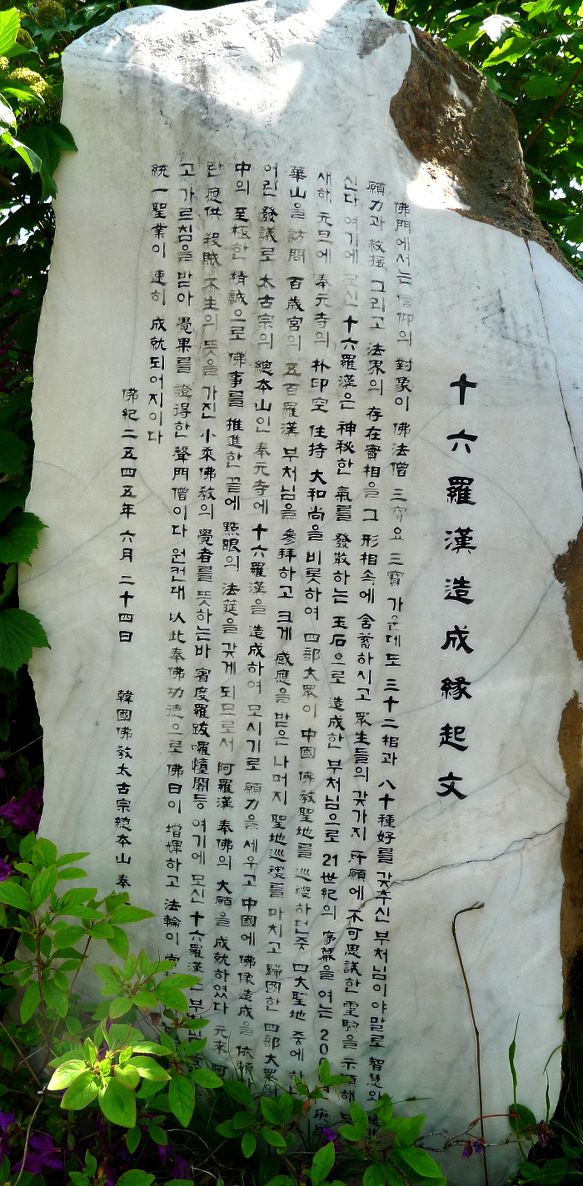 十六羅漢造成緣起文
佛門에서는 信仰의 對象이 佛法僧 三寶요 三寶 가운데도 三十二相과 八十種好를 갖추신 부처님이야말로 智慧와
願力과 救援 그리고 法界의 存在實相을 그 形相속에 含蓄하시고 衆生들의 갖가지 所願에 不可思議한 靈驗을 示顯해
신다 여기에 모신 十六羅漢은 神秘한 氣를 發散하는 玉石으로 造成한 부처님으로 21世紀의 序幕을 여는
새해 元旦에 奉元寺의 朴印空 住持 大和尚을 비롯하여 四部大衆이 中國 佛敎聖地를 巡禮하던중 四大聖地 중에
華山을 訪問 百歲宮의 五百羅漢 부처님을 參拜하고 크게 感應을 받은 나머지 聖地巡禮를 마치고 歸國한 四部大衆의
어린 發議로 太古宗의 總本山인 奉元寺에 十六羅漢을 造成하여 모시기로 願力을 세우고 中國에 佛像造成을 依頼
中의 至極한 精誠으로 佛事를 推進한 끝에 點眼의 法筵을 갖게 되므로서 阿羅漢 奉佛의 大願을 成就하였다 元來 阿
란 應供 殺賊 不生의 뜻을 가진 小乘佛敎의 覺者를 뜻하는바 賓度羅跋囉惰闍등 여기에 모신 十六羅漢
고 가르침을 받아 覺果를 證得한 聲門僧이다 원컨대 以此奉佛功德으로 佛日이 增輝하고 法輪이
統一聖業이 速히 成就되어지이다
佛紀 二五四五年 六月 二十四日 韓國佛敎太古宗總本山 奉